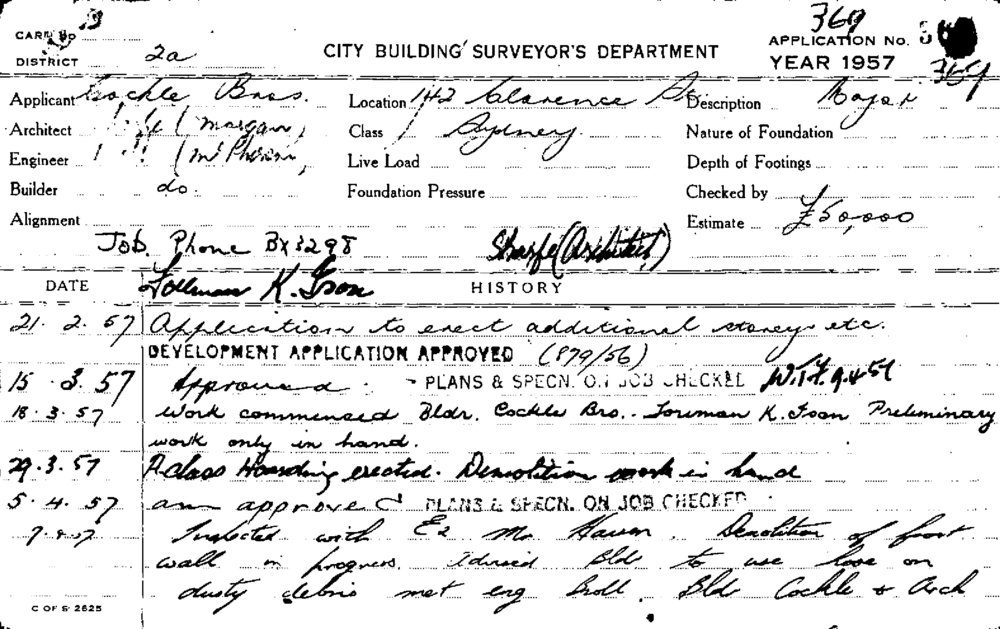 CARD No B 369
DISTRICT 2a CITY BUILDING SURVEYOR'S DEPARTMENT APPLICATION No.
YEAR 1957 369
Applicant Cockle Bros. Location 142 Clarence St Description Major
Architect (Morgan) Class Sydney Nature of Foundation
Engineer (McPherson) Live Load Depth of Footings
Builder do. Foundation Pressure Checked by
Alignment Estimate £50,000
Job Phone BX 3298 Sharpe (Architect)
DATE K. Ison HISTORY
21. 2. 57 Application to erect additional storeys etc.
DEVELOPMENT APPLICATION APPROVED (879/56)
15 . 3. 57 Approved . PLANS & SPECN. ON JOB CHECKED
18. 3. 57 Work commenced Bldr. Cockle Bro.. Foreman K. Ison Preliminary
work only in hand.
29. 3. 57 A class Hoarding erected. Demolition work in hand
5. 4. 57 am approved PLANS & SPECN. ON JOB CHECKED
Inspected with Mr Demolition of front
wall in progress. Advised Bldr to use hose on
dusty debris met eng Bldr Cockle & Arch
C OF S 2625